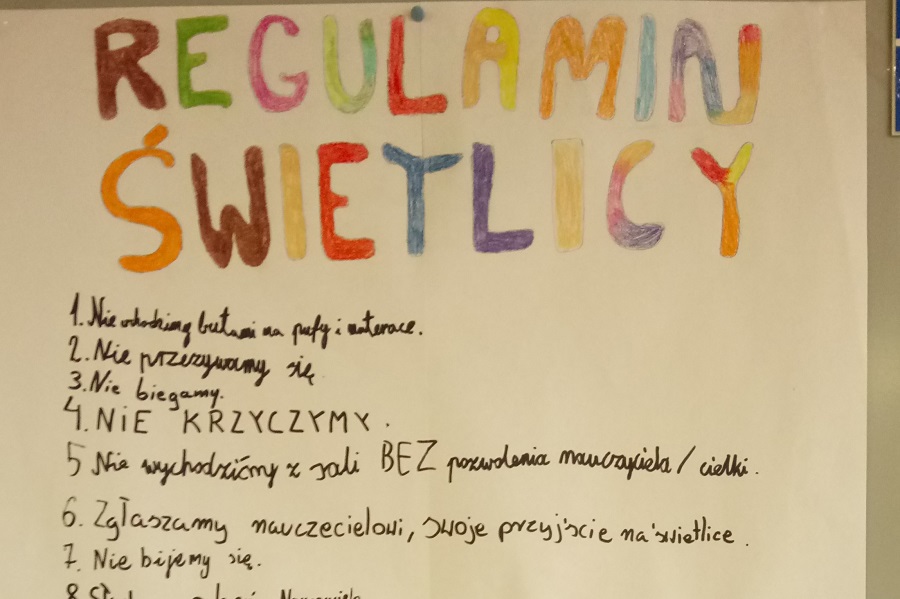 REGULAMIN
ŚWIETLICY
1. Nie wchodzimy butami na pufy i materace.
2. Nie przezywamy się
3. Nie biegamy.
4. NiE KRZYCZYMY.
5 Nie wychodzićmy z sali BEZ pozwolenia nauczyciela / cielki.
6. Zgłaszamy nauczecielowi, swoje przyjście na świetlice.
7. Nie bijemy się.
8.